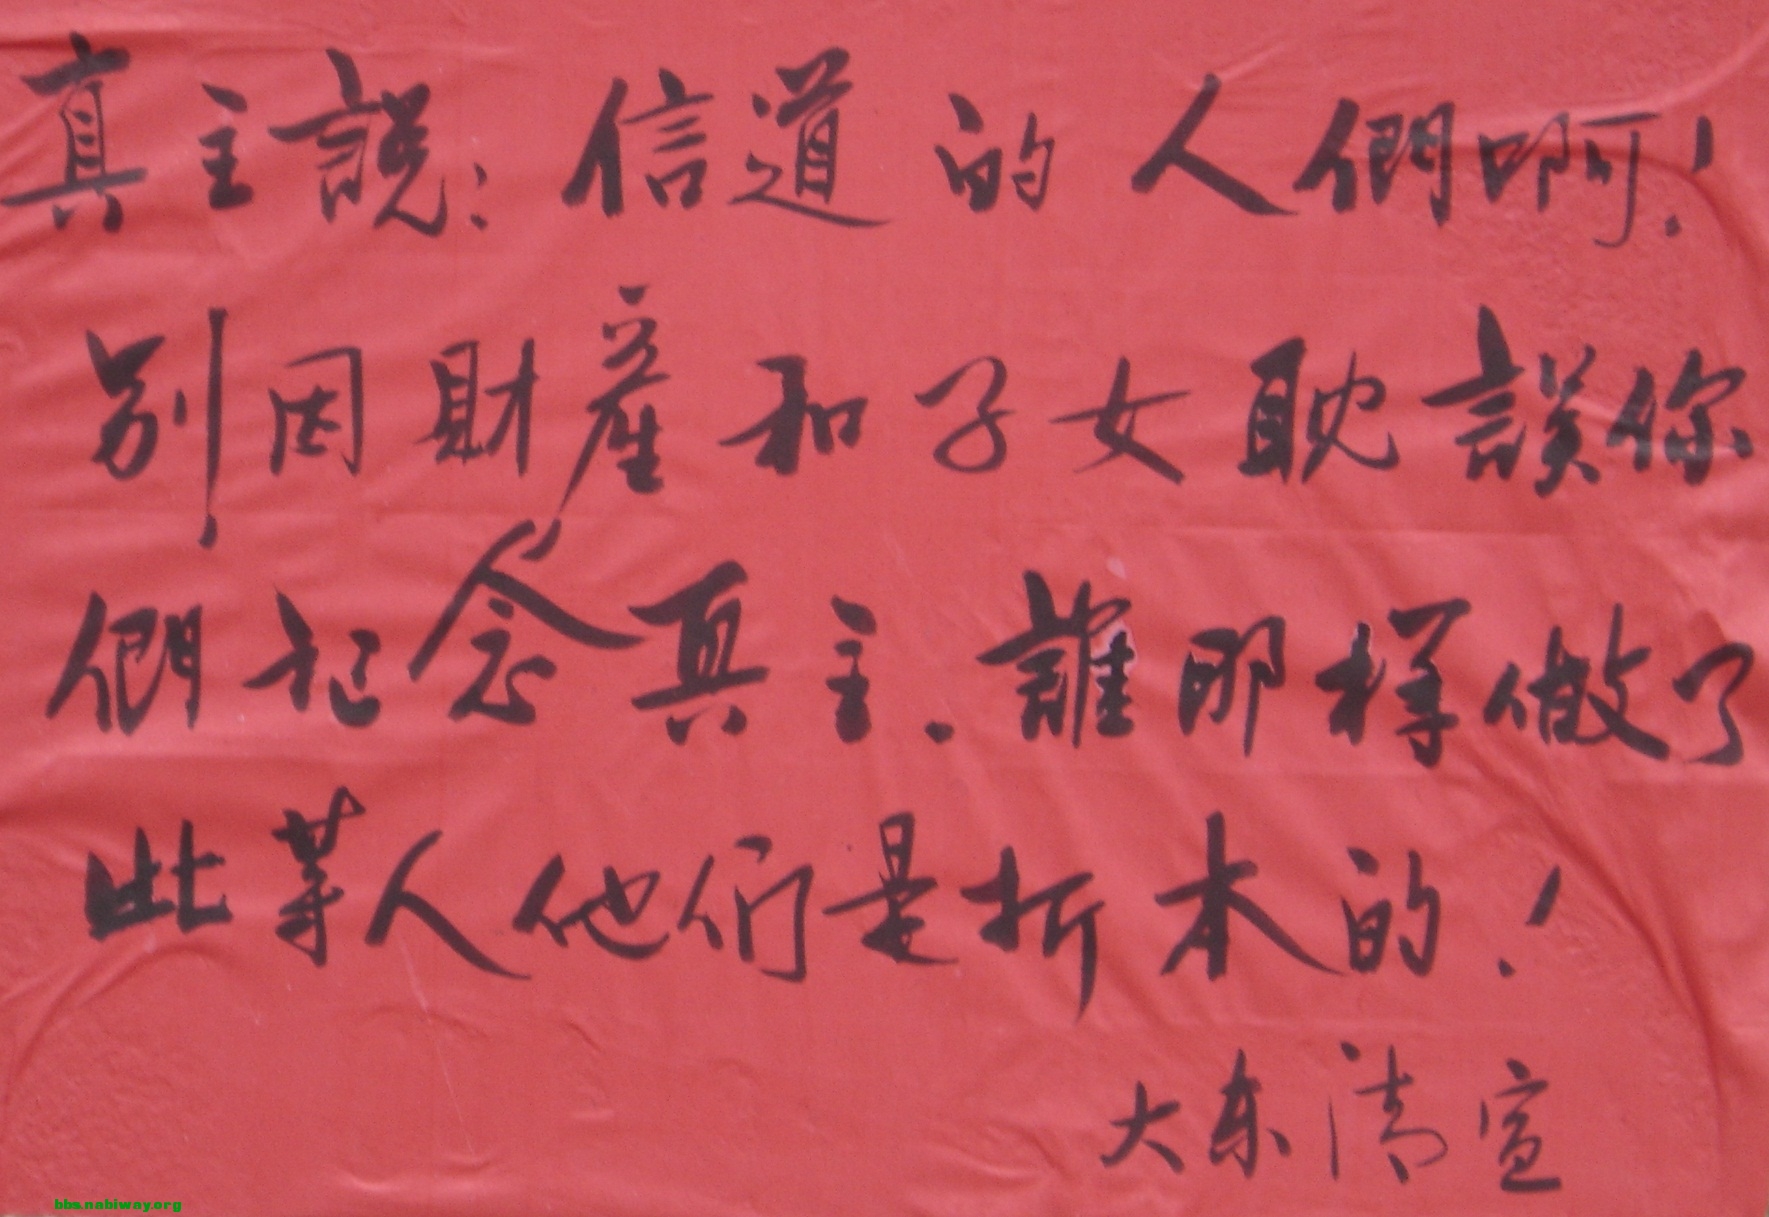 真主說：信道的人們啊！
別因財產和子女耽誤你
們記念真主．誰那樣做了
此等人他们是折本的！
大东清宣
bbs.nabiway.org